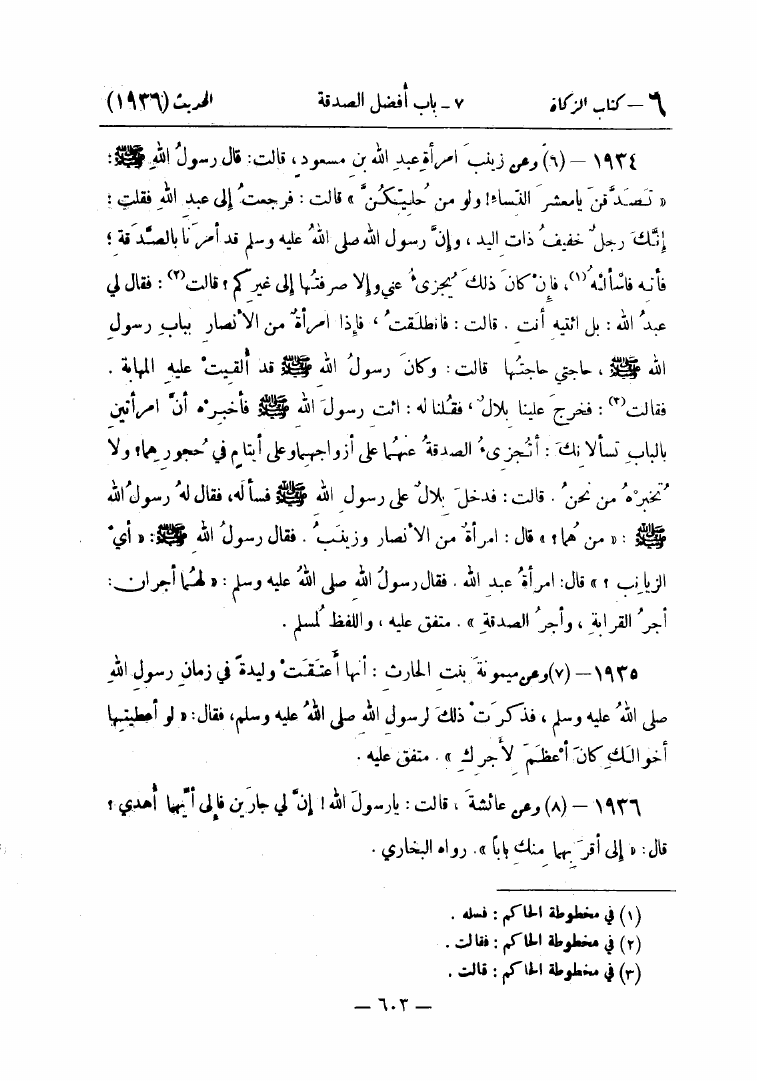 ٦ – كتاب الزكاة ٧ - باب أفضل الصدقة الحديث (١٩٣٦)
١٩٣٤ – (٦) وعن زينبَ امرأةِ عبدِ الله بنِ مسعودٍ، قالت: قال رسولُ اللهِ ﷺ:
« تَصَدَّقنَ يامعشرَ النساءِ! ولو من حُليّكنَّ » قالت : فرجعتُ إلى عبدِ اللهِ فقلت :
إنَّكَ رجلٌ خفيفُ ذاتِ اليد ، وإنَّ رسول الله صلى اللهُ عليه وسلم قد أمرَنا بالصَّدَقةِ ؛
فأتِه فاسْألهُ(١)، فإنْ كانَ ذلك يُجزىءُ عني وإلا صرفتُها إلى غيركم ؟ قالت(٢) : فقال لي
عبدُ الله : بل ائتيه أنتِ . قالت : فانطلقتُ ، فإذا امرأةٌ من الأنصارِ ببابِ رسولِ
الله ﷺ ، حاجتي حاجتُها قالت : وكانَ رسولُ اللهِ ﷺ قد أُلقيتْ عليهِ المهابة .
فقالت(٣) : فخرجَ علينا بلالٌ ، فقُلنا له : ائت رسولَ اللهِ ﷺ فأخبرْه أنَّ امرأتينِ
بالبابِ تسألانِكَ : أتُجزىءُ الصدقةُ عنهُما على أزواجِهما وعلى أيتامٍ في حُجورِهما؟ ولا
تُخبرْهُ من نحنُ . قالت : فدخلَ بلالٌ على رسولِ اللهِ ﷺ فسأله، فقال لهُ رسولُ الله
ﷺ : « من هُما؟ » قال : امرأةٌ من الأنصار وزينبُ . فقال رسولُ اللهِ ﷺ: « أيْ
الزيانبِ ؟ » قال: امرأةُ عبدِ الله . فقال رسولُ اللهِ صلى اللهُ عليه وسلم : « لهُما أجران:
أجرُ القرابةِ ، وأجرُ الصدقةِ » . متفق عليه ، واللفظ لمُسلم .
١٩٣٥ – (٧) وعن ميمونةَ بنتِ الحارث : أنها أَعتقتْ وليدةً في زمانِ رسولِ اللهِ
صلى اللهُ عليه وسلم ، فذكرَتْ ذلكَ لرسولِ اللهِ صلى اللهُ عليه وسلم، فقال: « لو أعطيتِها
أخوالَكِ كانَ أعْظَمَ لأجركِ » . متفق عليه .
١٩٣٦ – (٨) وعن عائشةَ ، قالت : يارسولَ الله ! إنَّ لي جارَين فإلى أيِّهما أُهدي ؟
قال : « إلى أقرَبِهما مِنكِ باباً » . رواه البخاري .
(١) في مخطوطة الحاكم : فسله .
(٢) في مخطوطة الحاكم : فقالت .
(٣) في مخطوطة الحاكم : قالت .
– ٦٠٣ –